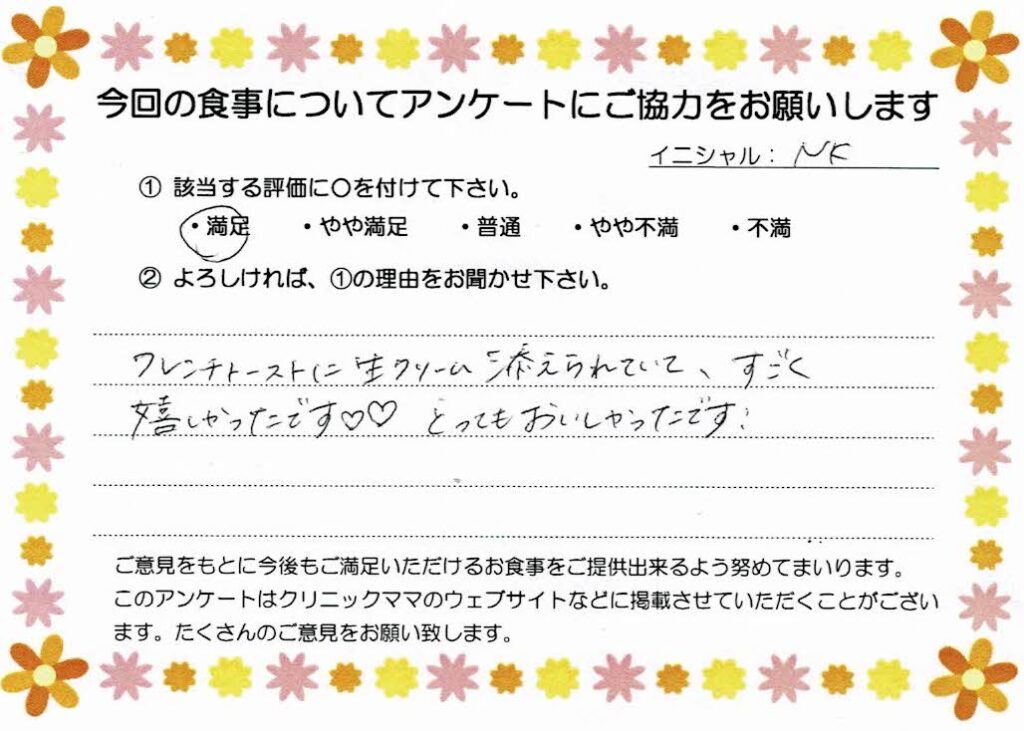 今回の食事についてアンケートにご協力をお願いします
イニシャル： NK
① 該当する評価に〇を付けて下さい。
・満足　・やや満足　・普通　・やや不満　・不満
② よろしければ、①の理由をお聞かせ下さい。
フレンチトーストに生クリーム添えられていて、すごく
嬉しかったです♡♡ とってもおいしかったです！
ご意見をもとに今後もご満足いただけるお食事をご提供出来るよう努めてまいります。
このアンケートはクリニックママのウェブサイトなどに掲載させていただくことがござい
ます。たくさんのご意見をお願い致します。